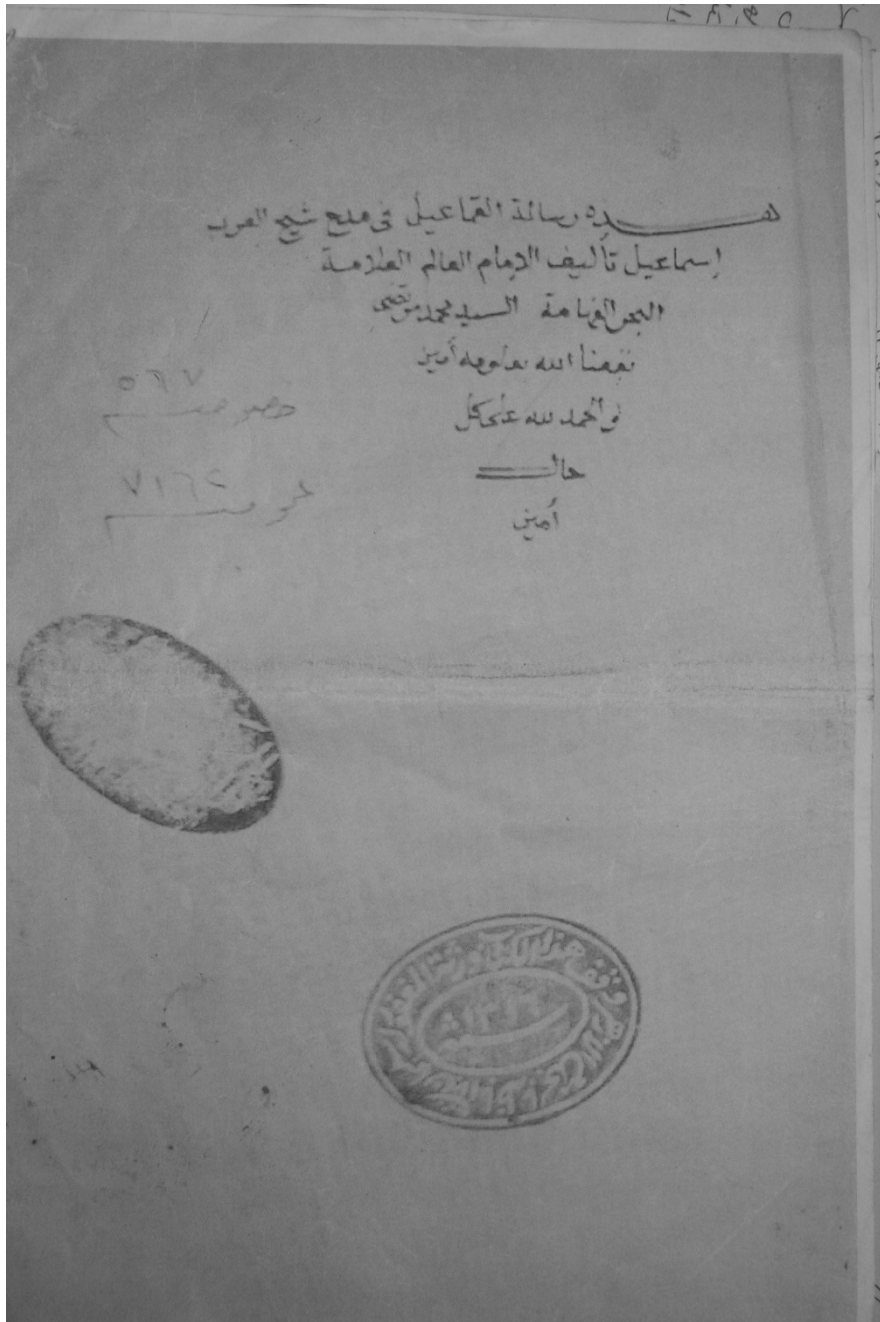 هذه رسالة القماعيل فى مدح شيخ العرب
إسماعيل تأليف الإمام العالم العلامة
البحر الفهامة السيد محمد مرتضى
نفعنا الله بعلومه أمين
والحمد لله على كل
حال
أمين
٥٦٧
خصوصية
٧١٦٢
عمومية
وقف هذا الكتاب ورثة